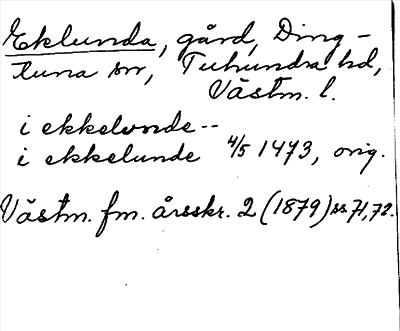 Eklunda, gård, Ding-
tuna sn, Tuhundra hd,
Västm. l.
i ekkelvnde --
i ekkelunde 4/5 1473, orig.
Västm. fm. årsskr. 2 (1879) ss. 71, 72.